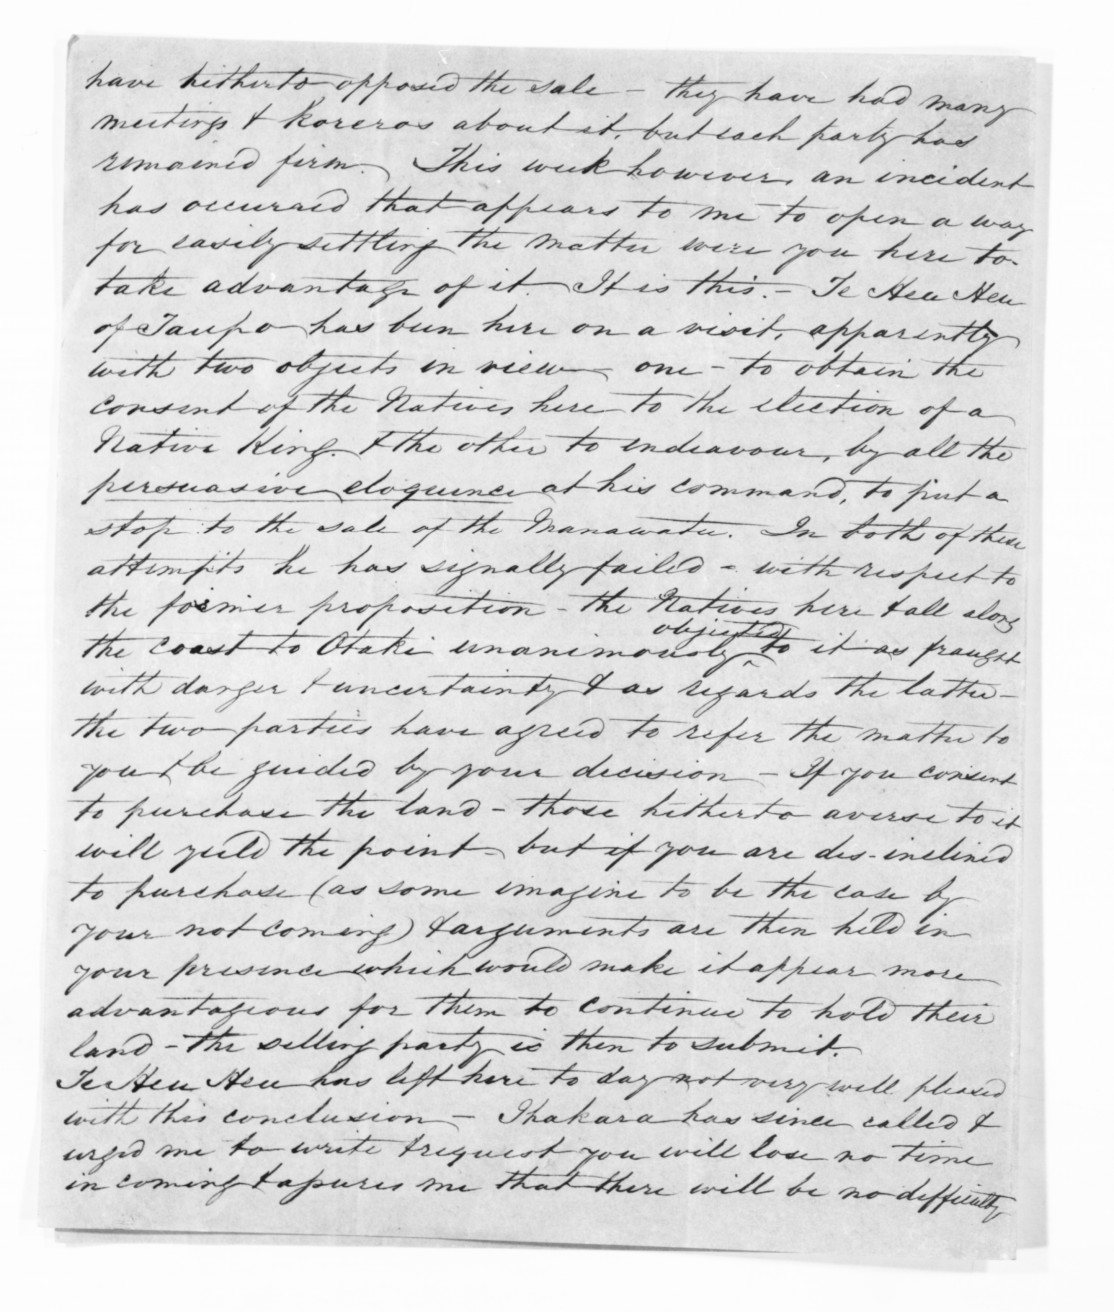 have hitherto opposed the sale – they have had many
meetings & Koreros about it, but each party has
remained firm. This week however, an incident
has occurred that appears to me to open a way
for easily settling the matter were you here to
take advantage of it. It is this. – Te Heu Heu
of Taupo has been here on a visit, apparently
with two objects in view – one – to obtain the
consent of the Natives here to the election of a
Native King. & the other to endeavour, by all the
persuasive eloquence at his command, to put a
stop to the sale of the Manawatu. In both of these
attempts he has signally failed – with respect to
the former proposition – the Natives here & all along
objected
the coast to Otaki unanimously ^ to it as fraught
with danger & uncertainty & as regards the latter –
the two parties have agreed to refer the matter to
you & be guided by your decision – If you consent
to purchase the land – those hitherto averse to it
will yield the point – but if you are dis-inclined
to purchase (as some imagine to be the case by
your not coming) & arguments are then held in
your presence which would make it appear more
advantageous for them to continue to hold their
land – the selling party is then to submit.
Te Heu Heu has left here to day not very well pleased
with this conclusion – Ihakara has since called &
urged me to write & request you will lose no time
in coming & assures me that there will be no difficulty